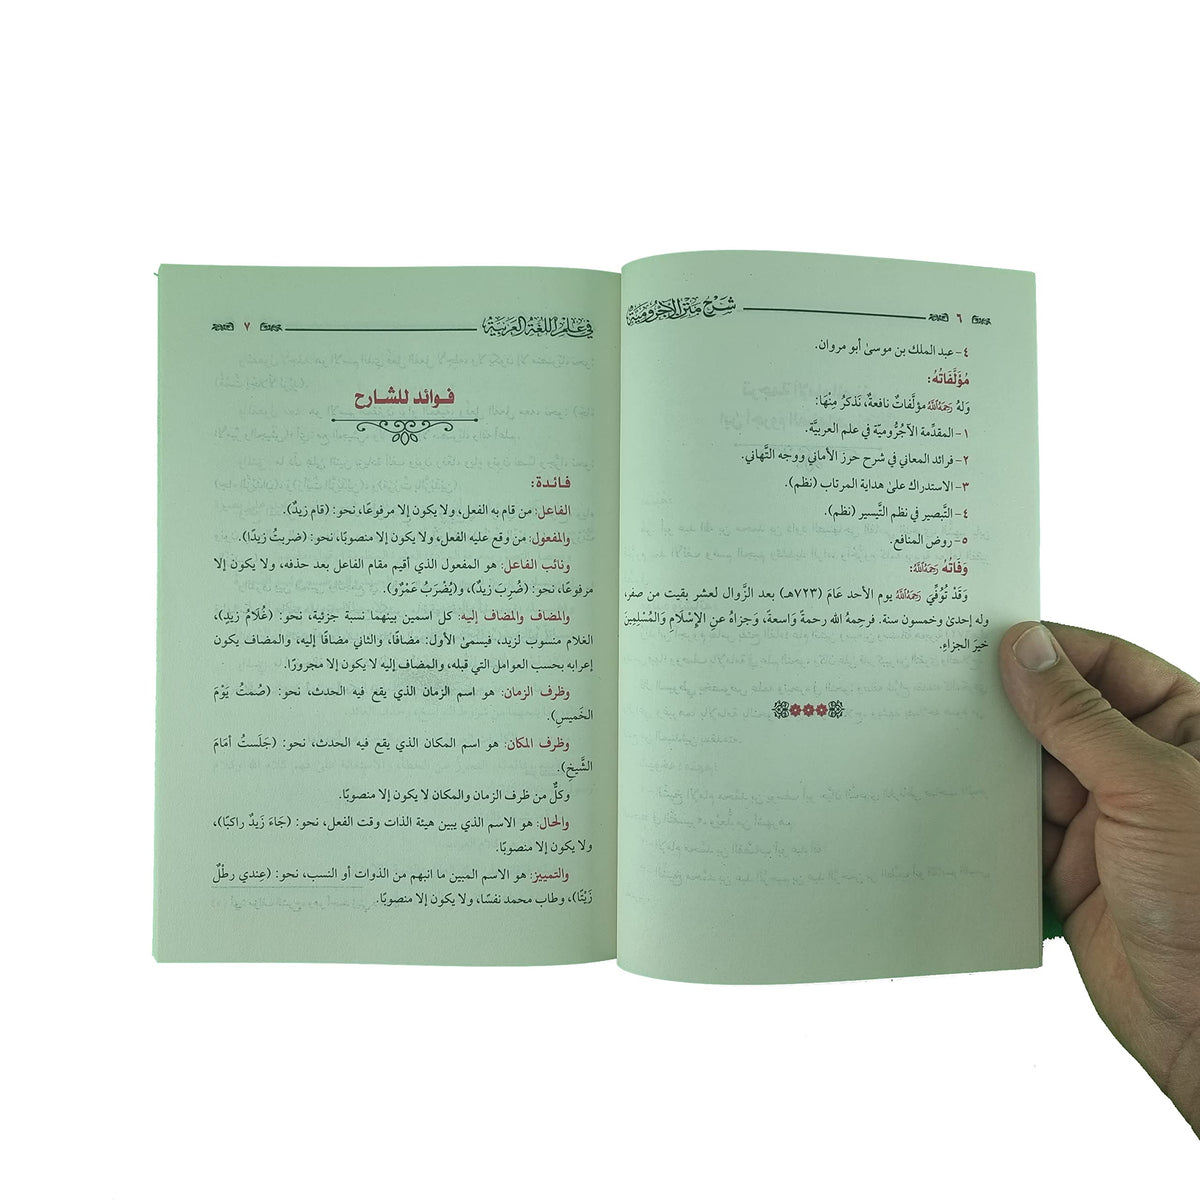 شرح متن الآجرومية ٦
٤- عبد الملك بن موسىٰ أبو مروان.
مُؤَلَّفَاتُهُ:
وَلهُ رَحِمَهُ اللَّهُ مؤلَّفاتٌ نافعةٌ، نَذكرُ مِنْهَا:
١- المقدِّمة الآجُرُّوميّة في علم العربيَّة.
٢- فرائد المعاني في شرح حرز الأماني ووجه التَّهاني.
٣- الاستدراك علىٰ هداية المرتاب (نظم).
٤- التَّبصير في نظم التَّيسير (نظم).
٥- روض المنافع.
وَفَاتُهُ رَحِمَهُ اللَّهُ:
وَقَدْ تُوُفِّيَ رَحِمَهُ اللَّهُ يوم الأحد عَامَ (٧٢٣هـ) بعد الزَّوال لعشر بقيت من صفر،
وله إحدىٰ وخمسون سنة. فرحمهُ الله رحمةً وَاسعةً، وجزاهُ عنِ الإسْلَامِ وَالمُسْلِمِينَ
خيرَ الجزاءِ.
في علم اللغة العربية ٧
فوائد للشارح
فائدة:
الفاعل: من قام به الفعل، ولا يكون إلا مرفوعًا، نحو: (قام زيدٌ).
والمفعول: من وقع عليه الفعل، ولا يكون إلا منصوبًا، نحو: (ضربتُ زيدًا).
ونائب الفاعل: هو المفعول الذي أقيم مقام الفاعل بعد حذفه، ولا يكون إلا
مرفوعًا، نحو: (ضُرِبَ زَيدٌ)، و(يُضْرَبُ عَمْرٌو).
والمضاف والمضاف إليه: كل اسمين بينهما نسبة جزئية، نحو: (غُلَامُ زيدٍ)،
الغلام منسوب لزيد، فيسمىٰ الأول: مضافًا، والثاني مضافًا إليه، والمضاف يكون
إعرابه بحسب العوامل التي قبله، والمضاف إليه لا يكون إلا مجرورًا.
وظرف الزمان: هو اسم الزمان الذي يقع فيه الحدث، نحو: (صُمتُ يَوْمَ
الخَميسِ).
وظرف المكان: هو اسم المكان الذي يقع فيه الحدث، نحو: (جَلَستُ أمَامَ
الشَّيخِ).
وكلٌّ من ظرف الزمان والمكان لا يكون إلا منصوبًا.
والحال: هو الاسم الذي يبين هيئة الذات وقت الفعل، نحو: (جَاءَ زَيدٌ راكبًا)،
ولا يكون إلا منصوبًا.
والتمييز: هو الاسم المبين ما انبهم من الذوات أو النسب، نحو: (عِندي رطْلٌ
زَيْتًا)، وطاب محمد نفسًا، ولا يكون إلا منصوبًا.